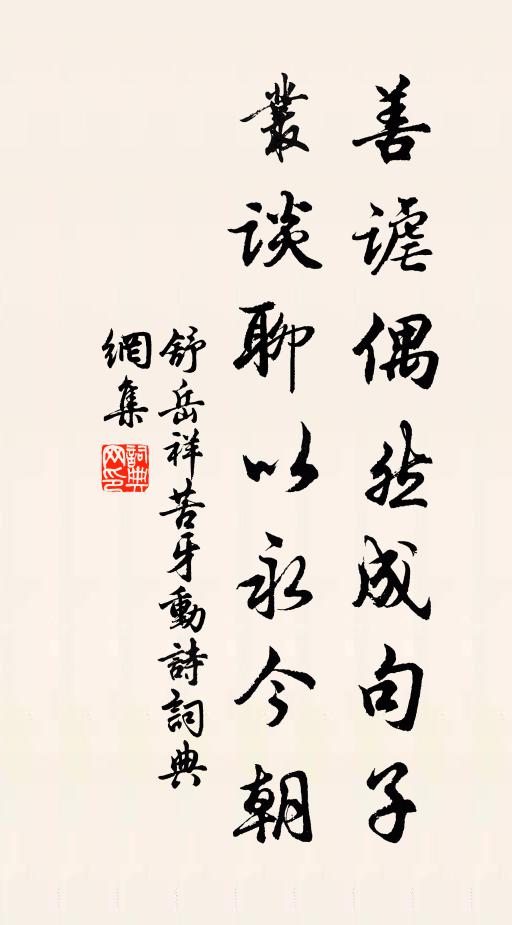 善謔偶然成句子
叢談聊以永今朝
舒岳祥苦牙動詩詞典
網集
詞典網印